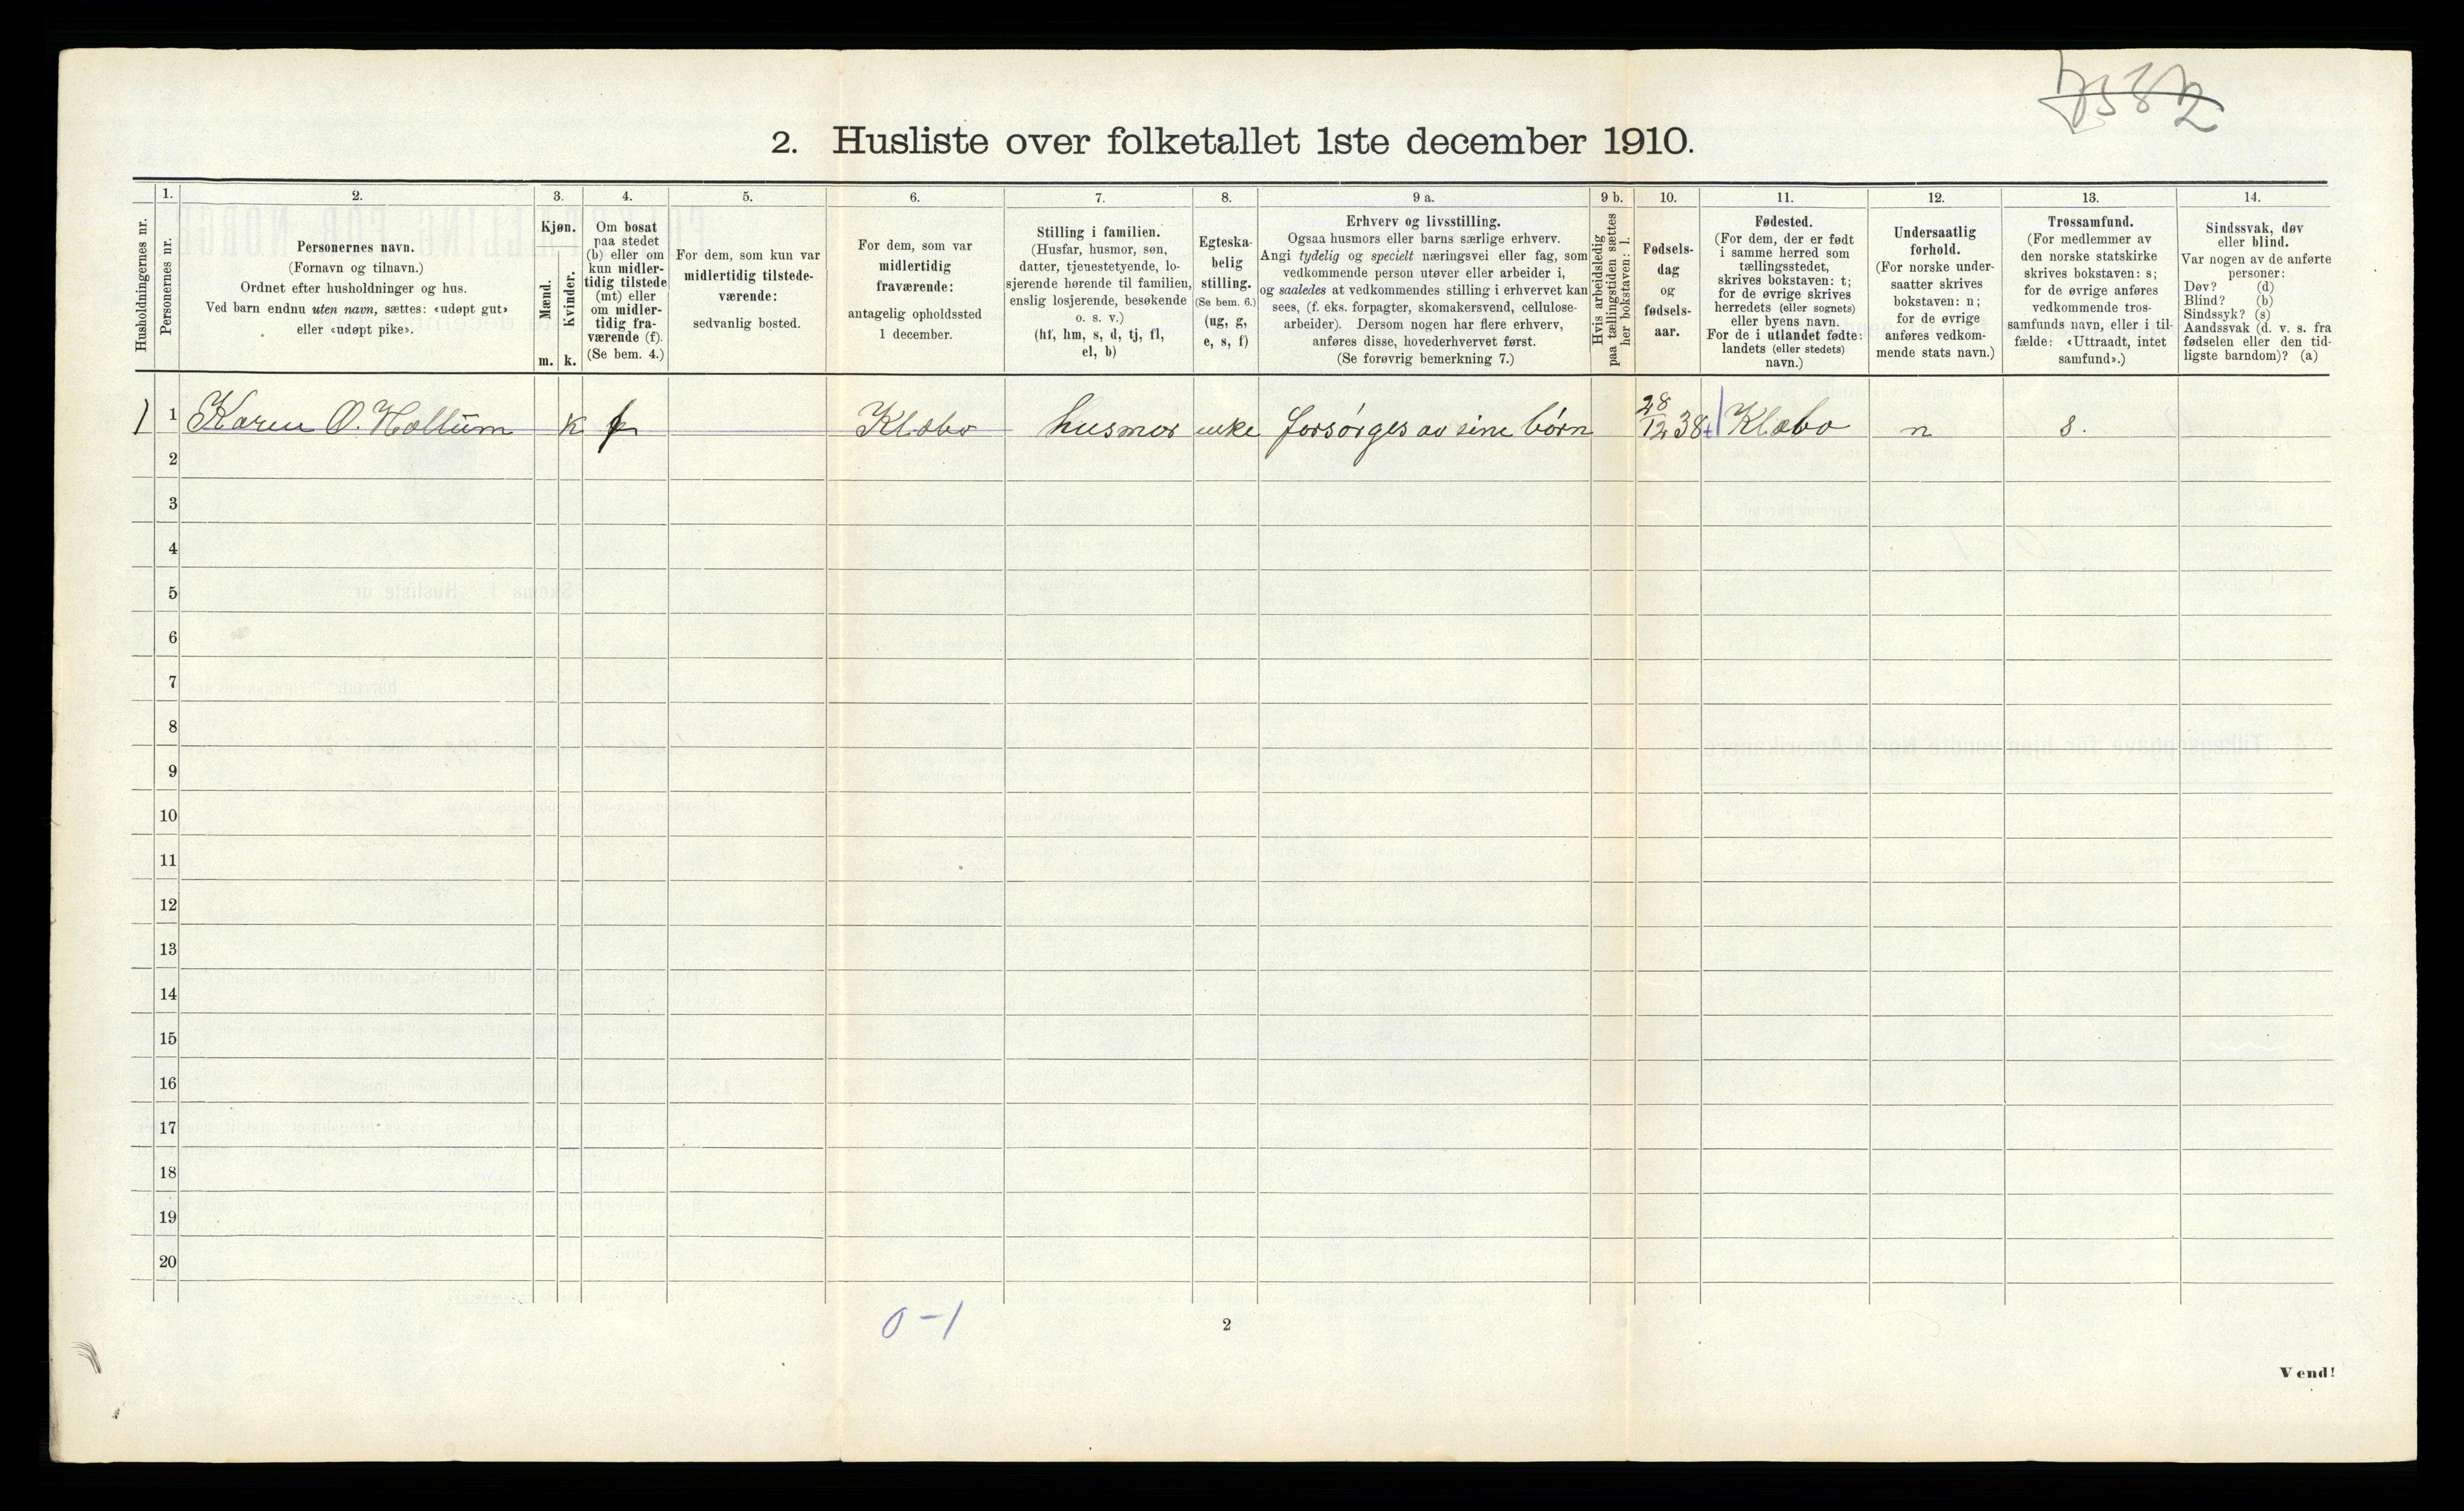 7582
2. Husliste over folketallet 1ste december 1910.
Husholdningernes nr.
1.
Personernes nr.
2.
Personernes navn.
(Fornavn og tilnavn.)
Ordnet efter husholdninger og hus.
Ved barn endnu uten navn, sættes: «udøpt gut»
eller «udøpt pike».
3.
Kjøn.
Mænd.
Kvinder.
m. k.
4.
Om bosat
paa stedet
(b) eller om
kun midler-
tidig tilstede
(mt) eller
om midler-
tidig fra-
værende (f).
(Se bem. 4.)
5.
For dem, som kun var
midlertidig tilstede-
værende:
sedvanlig bosted.
6.
For dem, som var
midlertidig
fraværende:
antagelig opholdssted
1 december.
7.
Stilling i familien.
(Husfar, husmor, søn,
datter, tjenestetyende, lo-
sjerende hørende til familien,
enslig losjerende, besøkende
o. s. v.)
(hf, hm, s, d, tj, fl,
el, b)
8.
Egteska-
belig
stilling.
(Se bem. 6.)
(ug, g,
e, s, f)
9 a.
Erhverv og livsstilling.
Ogsaa husmors eller barns særlige erhverv.
Angi tydelig og specielt næringsvei eller fag, som
vedkommende person utøver eller arbeider i,
og saaledes at vedkommendes stilling i erhvervet kan
sees, (f. eks. forpagter, skomakersvend, cellulose-
arbeider). Dersom nogen har flere erhverv,
anføres disse, hovederhvervet først.
(Se forøvrig bemerkning 7.)
9 b.
Hvis arbeidsledig
paa tællingstiden sættes
her bokstaven: l.
10.
Fødsels-
dag
og
fødsels-
aar.
11.
Fødested.
(For dem, der er født
i samme herred som
tællingsstedet,
skrives bokstaven: t;
for de øvrige skrives
herredets (eller sognets)
eller byens navn.
For de i utlandet fødte:
landets (eller stedets)
navn.)
12.
Undersaatlig
forhold.
(For norske under-
saatter skrives
bokstaven: n;
for de øvrige
anføres vedkom-
mende stats navn.)
13.
Trossamfund.
(For medlemmer av
den norske statskirke
skrives bokstaven: s;
for de øvrige anføres
vedkommende tros-
samfunds navn, eller i til-
fælde: «Uttraadt, intet
samfund».)
14.
Sindssvak, døv
eller blind.
Var nogen av de anførte
personer:
Døv? (d)
Blind? (b)
Sindssyk? (s)
Aandssvak (d. v. s. fra
fødselen eller den tid-
ligste barndom)? (a)
1 1 Karen O. Hallüm k f Klæbo husmor enke forsørges av sine børn 28/12 38 t Klæbo n s.
2
3
4
5
6
7
8
9
10
11
12
13
14
15
16
17
18
19
20
0-1
2
Vend!